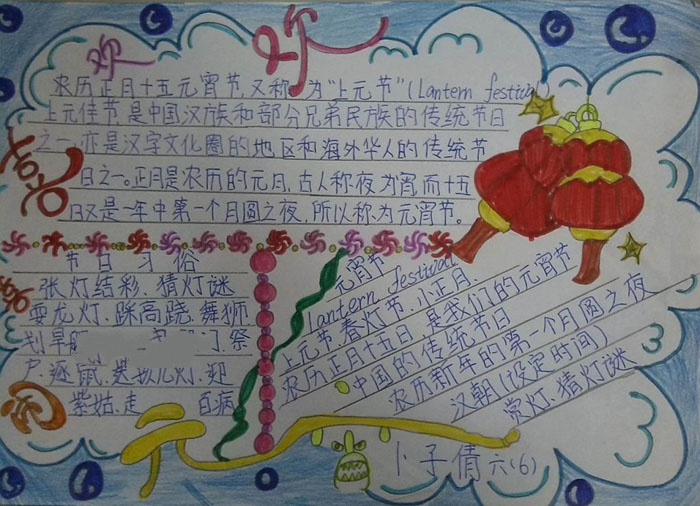 欢
农历正月十五元宵节,又称为“上元节”(Lantern festival)
上元佳节是中国汉族和部分兄弟民族的传统节日
之一,亦是汉字文化圈的地区和海外华人的传统节
日之一。正月是农历的元月,古人称夜为宵而十五
日又是一年中第一个月圆之夜,所以称为元宵节。
节日习俗
张灯结彩、猜灯谜
耍龙灯、踩高跷、舞狮
划旱 祭
户、逐鼠、 迎
紫姑、走 百病
元宵节
lantern festival
上元节、春灯节、小正月、
农历正月十五日 是我们的元宵节
中国的传统节日
农历新年的第一个月圆之夜
汉朝(设定时间)
赏灯、猜灯谜
元
卜子倩 六(6)